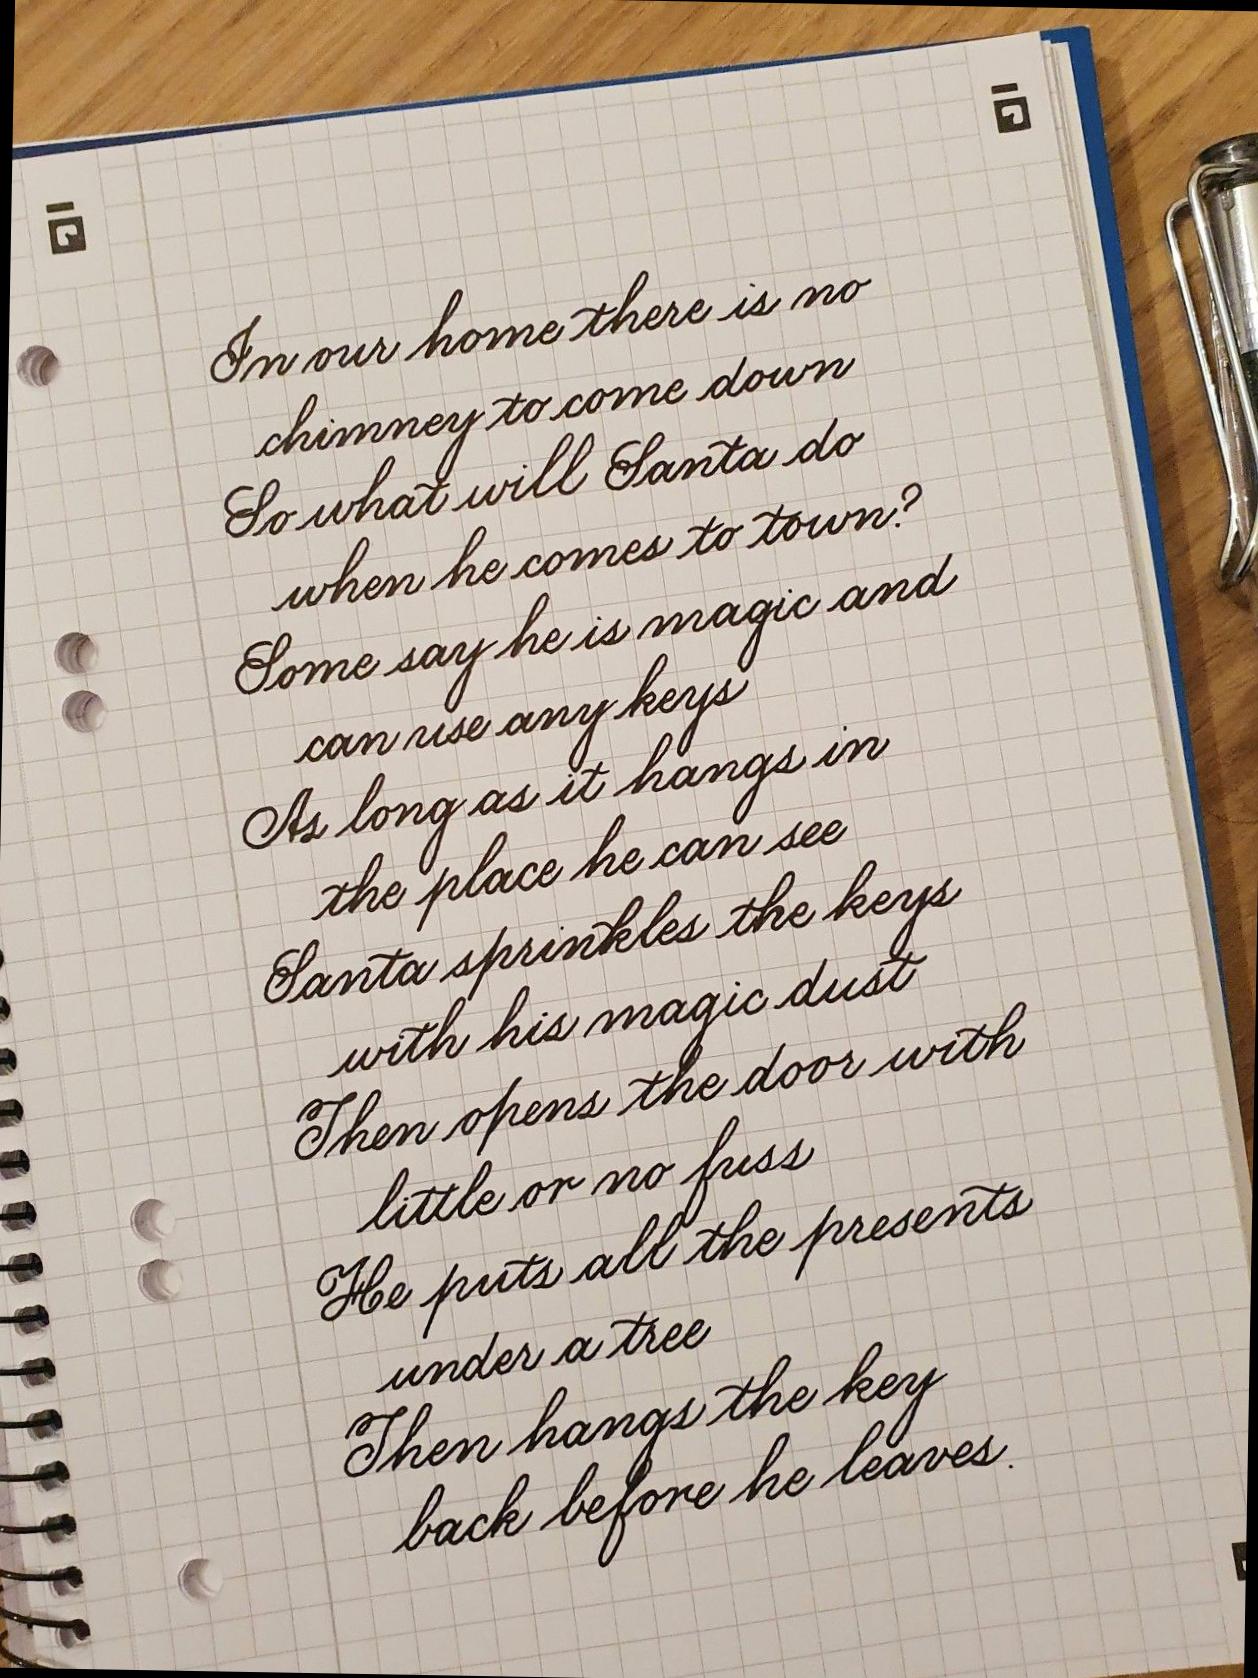 In our home there is no
chimney to come down
So what will Santa do
when he comes to town?
Some say he is magic and
can use any keys
As long as it hangs in
the place he can see
Santa sprinkles the keys
with his magic dust
Then opens the door with
little or no fuss
He puts all the presents
under a tree
Then hangs the key
back before he leaves.